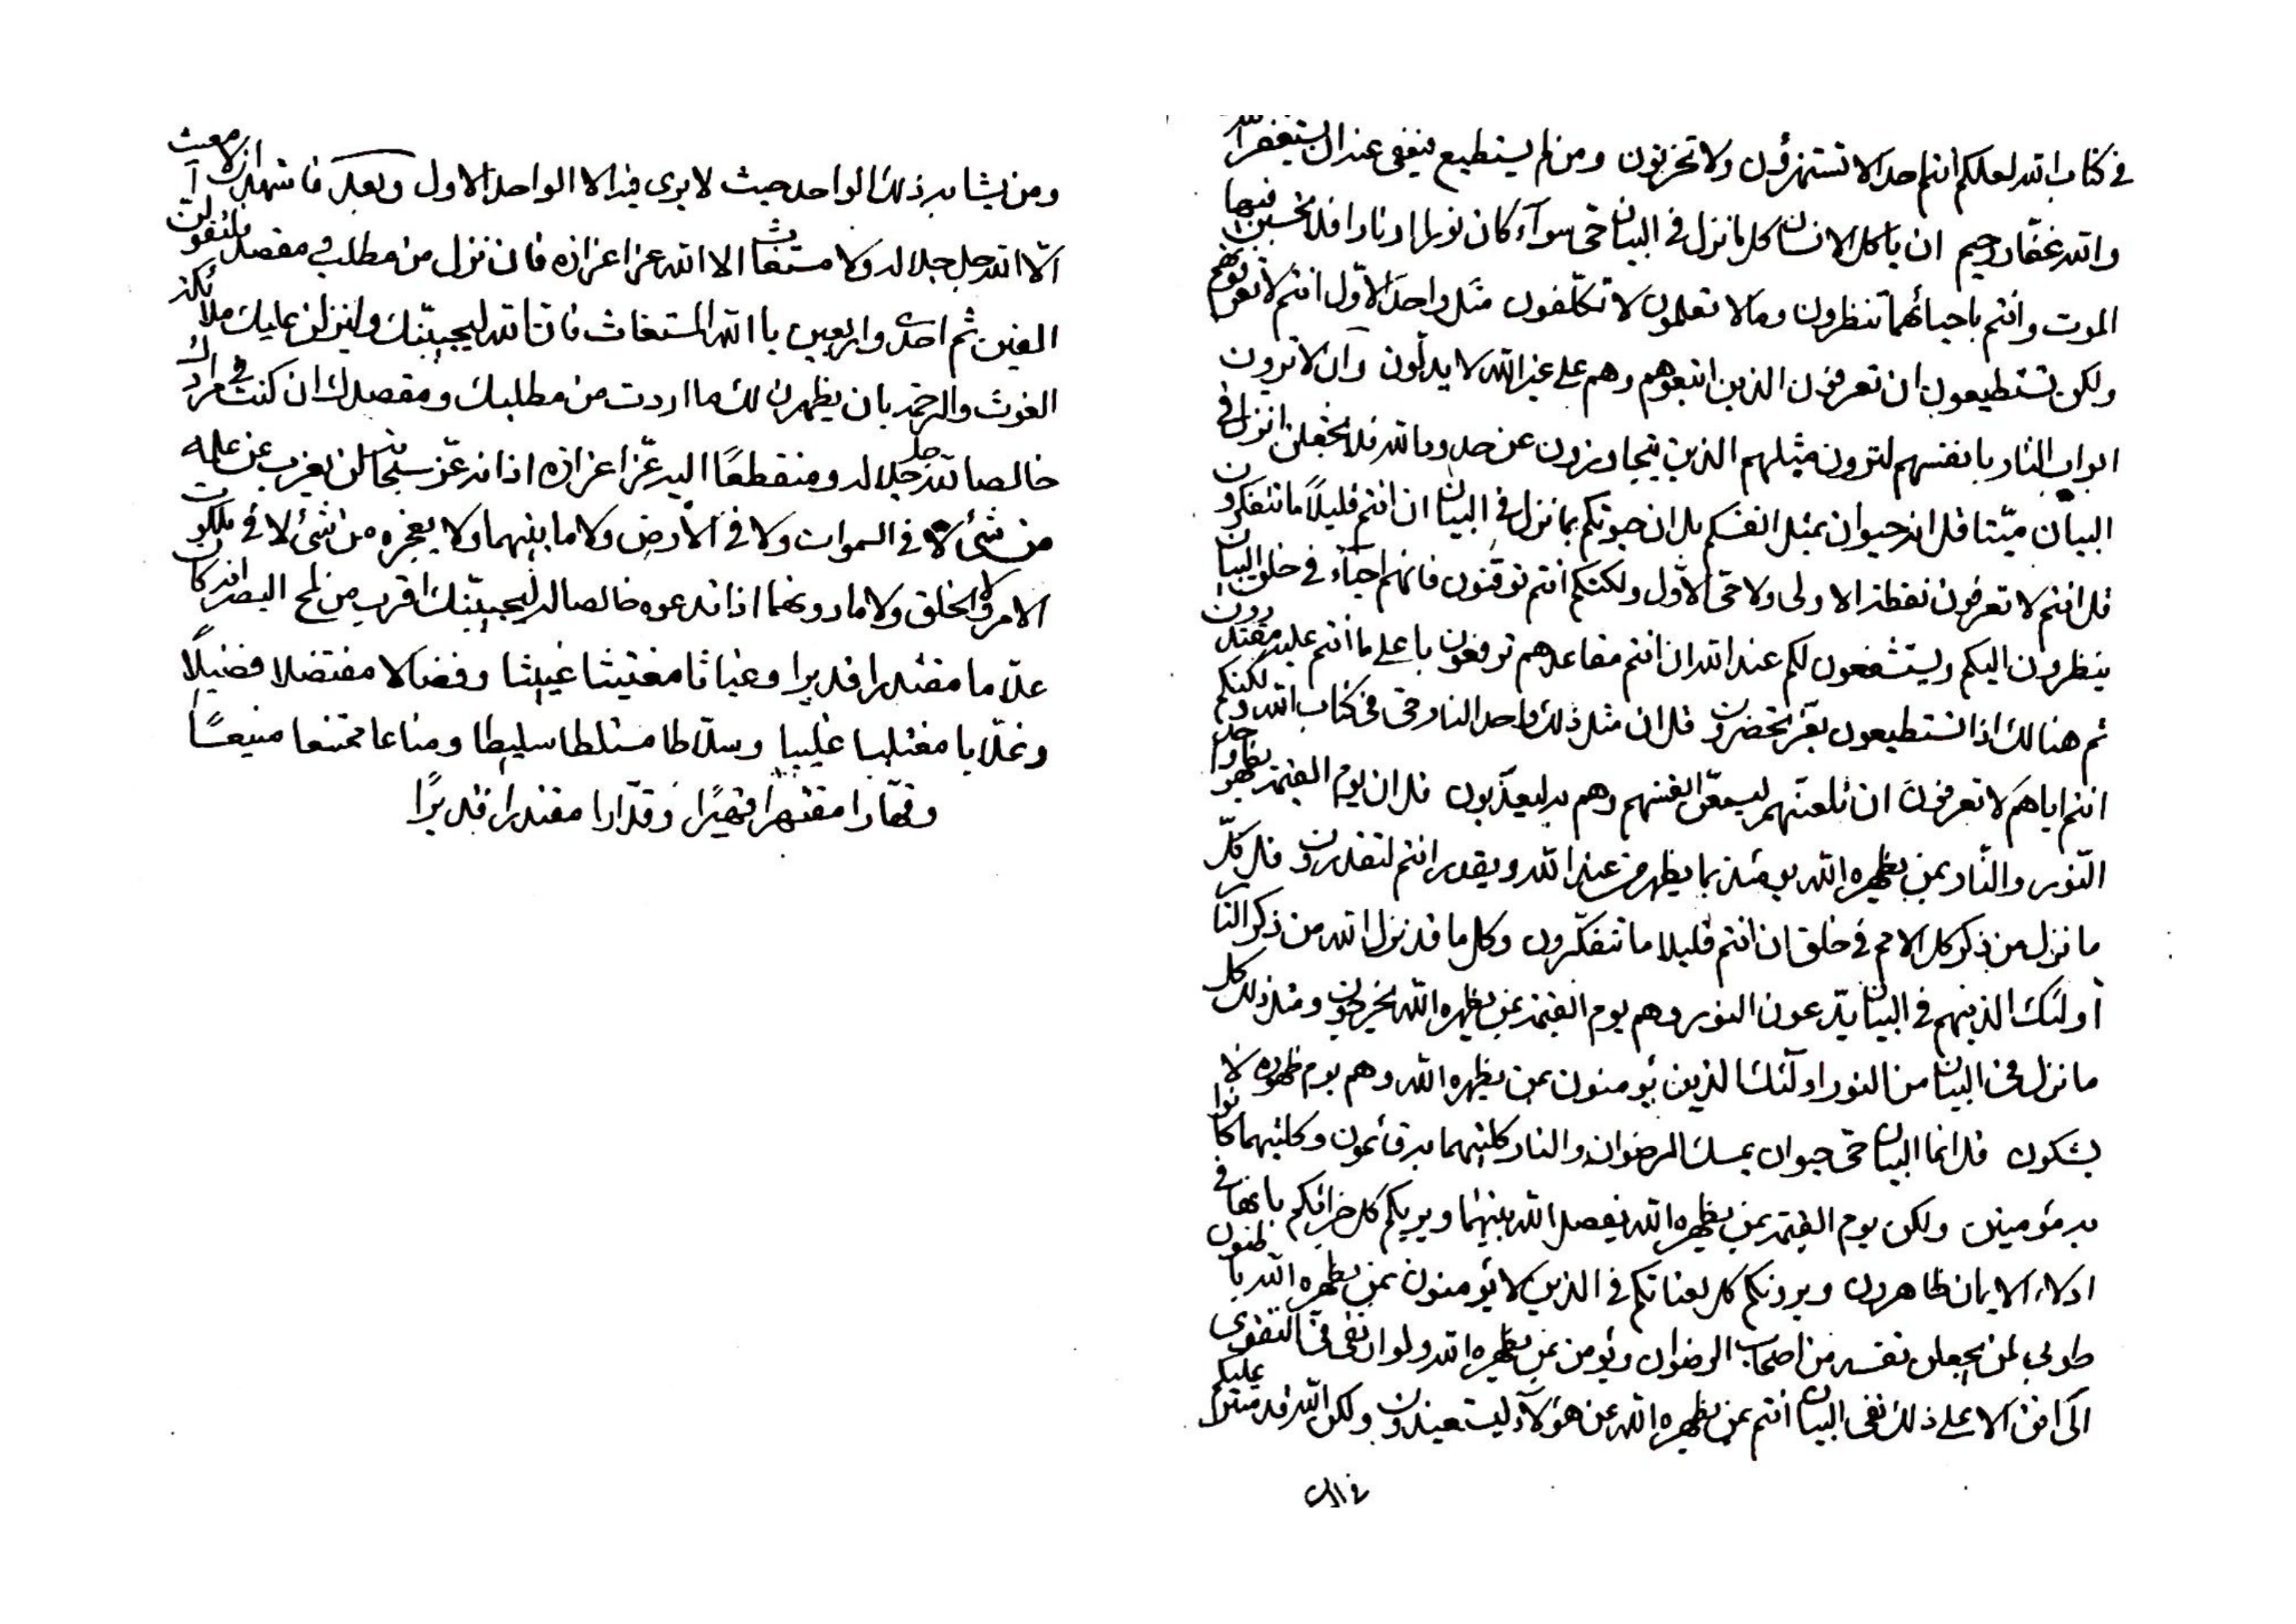 في كتاب الله لعلكم انتم احدا لا تستهزؤن ولا تحزنون ومن لم يستطيع فيعفى عنه ان يستغفر الله
والله غفار رحيم ان يا كل الانسان كل ما نزل في البيان حي سوآء كان نورا او نارا فلا تحسبن فيها
الموت وانتم باحيائهما تنظرون وما لا تعلمون لا تكلفون مثل واحد الاول انتم لا تعرفونهم
ولكن تستطيعون ان تعرفون الذين اتبعوهم وهم على غير الله لا يدلون وان لا ترون
ابواب النار بانفسهم لترون مثلهم الذين يتجاوزون عن حدود الله فلا تجعلن ما نزل في
البيان ميتا قل انه حيوان بمثل انفسكم بل ان حيوتكم بما نزل في البيان ان انتم قليلاً ما تتفكرون
قل انتم لا تعرفون نقطة الاولى ولا حي الاول ولكنكم انتم توقنون فانهم احيآء في خلق البيان
ينظرون اليكم ويستشفعون لكم عند الله ان انتم مقاعدهم ترفعون باعلى ما انتم عليه مقتدرون
ثم هنالك اذا تستطيعون بقر تحضرون قل ان مثل ذلك واحد النار حي في كتاب الله ولكنكم
انتم اياهم لا تعرفون ان تلعنهم ليسمعن انفسهم وهم به ليعذبون قل ان يوم القيمة يظهر واحد
النور والنار بمن يظهره الله يومئذ بما يظهر من عند الله ويقدر انتم لتقدرون قل كل
ما نزل من ذكر كل الامم في خلق ان انتم قليلا ما تتفكرون وكل ما قد نزل الله من ذكر النار
أولئك الذينهم في البيان يدعون النور وهم يوم القيمة بمن يظهره الله يحزنون ومثل ذلك كل
ما نزل في البيان من النور اولئك الذين يؤمنون بمن يظهره الله وهم يوم ظهوره لا
يشكون قل انما البيان حي حيوان يمسك الرضوان والنار كليهما به قائمون وكليهما كانوا
به مؤمنين ولكن يوم القيمة بمن يظهره الله يفصل الله بينهما ويريكم كل خرافكم بانها في
اولاء الايمان ظاهرون ويردنكم كل لعناتكم في الذين لا يؤمنون بمن يظهره الله باطنون
طوبى لمن يجعلن نفسه من اصحاب الرضوان ويؤمن بمن يظهره الله ولو ان نفى في التقوى
الى افق الاعلى ذلك نفى البيان انتم بمن يظهره الله عن هؤلاء لتستعيذون ولكن الله قد من عليكم
ومن يشا به ذلك الواحد حيث لا يرى فيه الا الواحد الاول وبعد فاشهد ان لا مغيث
الا الله جل جلاله ولا مستغاث الا الله عز اعزازه فان نزل من مطلب ومقصد فلتقولن
الفين ثم احدى واربعين يا الله المستغاث فان الله ليجيبنك ولينزلن عليك ملائكة
الغوث والرحمة بان يظهرن لك ما اردت من مطلبك ومقصدك ان كنت في مرادك
خالصا لله جل جلاله ومنقطعًا اليه عز اعزازه اذ انه عز سبحانه لن يعزب عن علمه
من شئ لا في السموات ولا في الأرض ولا ما بينهما ولا يعجزه من شئ لا في ملكوت
الامر والخلق ولا ما دونهما اذا تدعوه خالصا له ليجيبنك اقرب من لمح البصر انه كان
علاما مقتدرا قديرا وغياثا مغتيثا غييثا وفضالا مفتضلا فضيلًا
وغلابا مغتلبا غليبا وسلاطا مستلطا سليطا ومناعا ممتنعا منيعًا
وقهارا مقتهرا قهيرًا وقدارا مقتدرا قديرًا